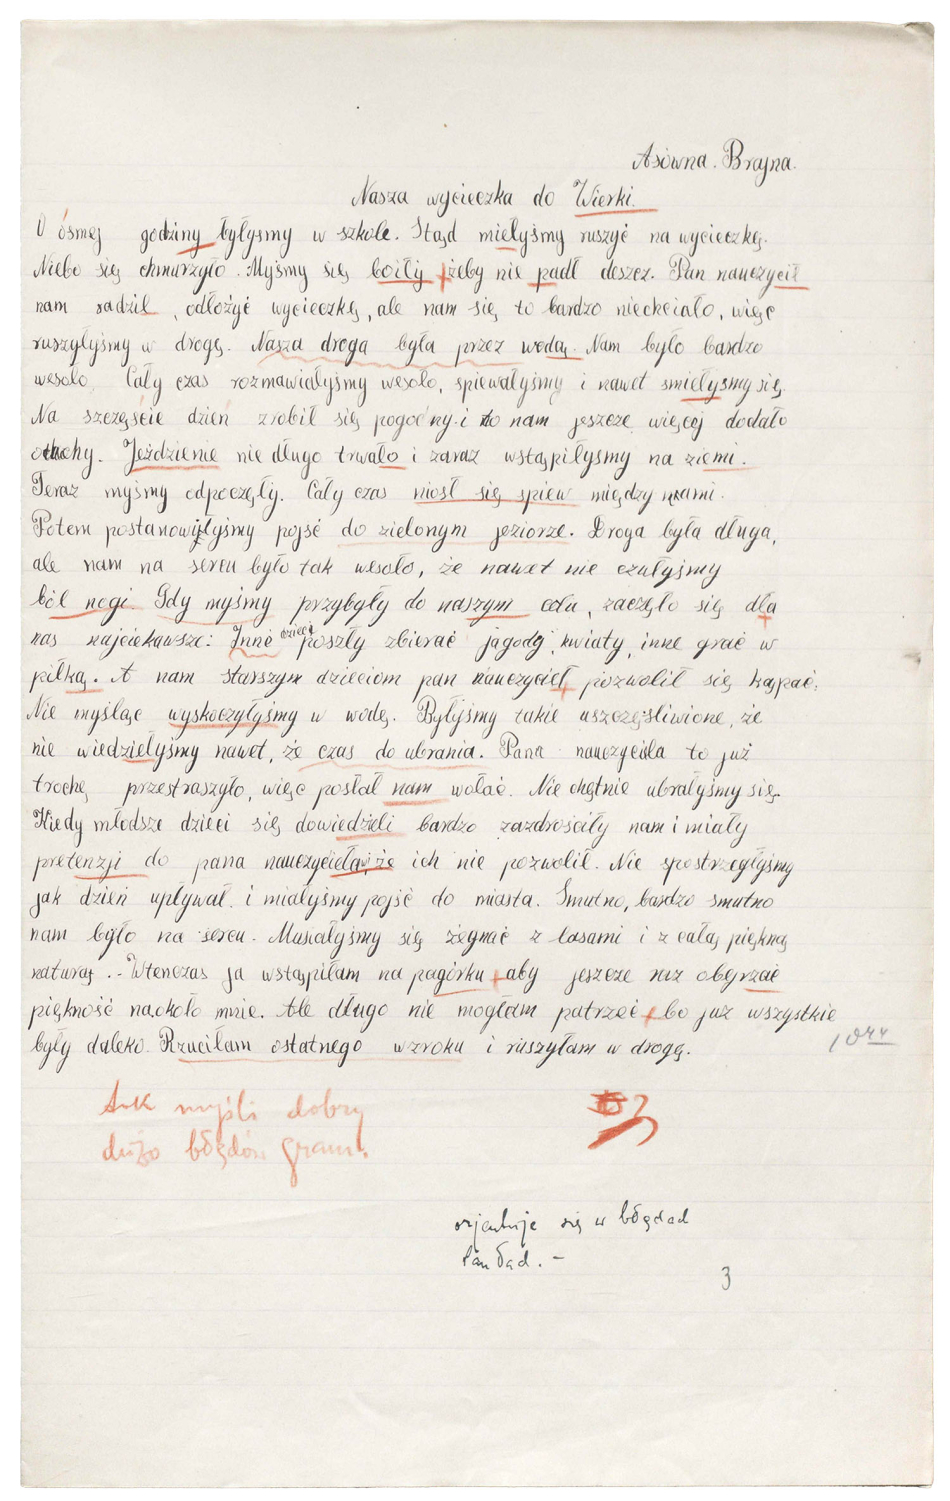 Asówna. Brajna.
Nasza wycieczka do Wierki.
O ósmej godziny byłyśmy w szkole. Stąd miełyśmy ruszyć na wycieczkę.
Niebo się chmurzyło. Myśmy się boiły żeby nie padł deszcz. Pan nauczycil
nam radzil, odłożyć wycieczkę, ale nam się to bardzo niechciało, więc
ruszyłyśmy w drogę. Nasza droga była przez wodą. Nam było bardzo
wesoło. Cały czas rozmawiałyśmy wesoło, spiewałyśmy i nawet smiełyśmy się.
Na szczęście dzień zrobił się pogodny i to nam jeszcze więcej dodało
otuchy. Jeździenie nie długo trwało i zaraz wstąpiłyśmy na ziemi.
Teraz myśmy odpoczęły. Cały czas niosł się spiew między nami.
Potem postanowiłyśmy pojść do zielonym jeziorze. Droga była długa,
ale nam na sercu było tak wesoło, że nawet nie czułyśmy
ból nogi. Gdy myśmy przybyły do naszym celu, zaczęło się dla
nas najciekawsze: Inne dzieci poszły zbierać jagody, kwiaty, inne grać w
piłką. A nam starszym dzieciom pan nauczyciel pozwolił się kąpać.
Nie myśląc wyskoczyłyśmy w wodę. Byłyśmy takie uszczęśliwione, że
nie wiedziełyśmy nawet, że czas do ubrania. Pana nauczyciela to już
trochę przestraszyło, więc posłał nam wołać. Nie chętnie ubrałyśmy się.
Kiedy młodsze dzieci się dowiedzieli bardzo zazdrościły nam i miały
pretenzji do pana nauczyciela, że ich nie pozwolił. Nie spostrzegłyśmy
jak dzień upływał i miałyśmy pojść do miasta. Smutno, bardzo smutno
nam było na sercu. Musiałyśmy się żegnać z lasami i z całą piękną
naturą. - Wtenczas ja wstąpiłam na pagórku aby jeszcze raz obejrzać
piękność naokoło mnie. Ale długo nie mogłam patrzeć bo już wszystkie
były daleko. Rzuciłam ostatnego wzroku i ruszyłam w drogę.
tok myśli dobry
dużo błędów gram.
orjentuje się w błędach
3